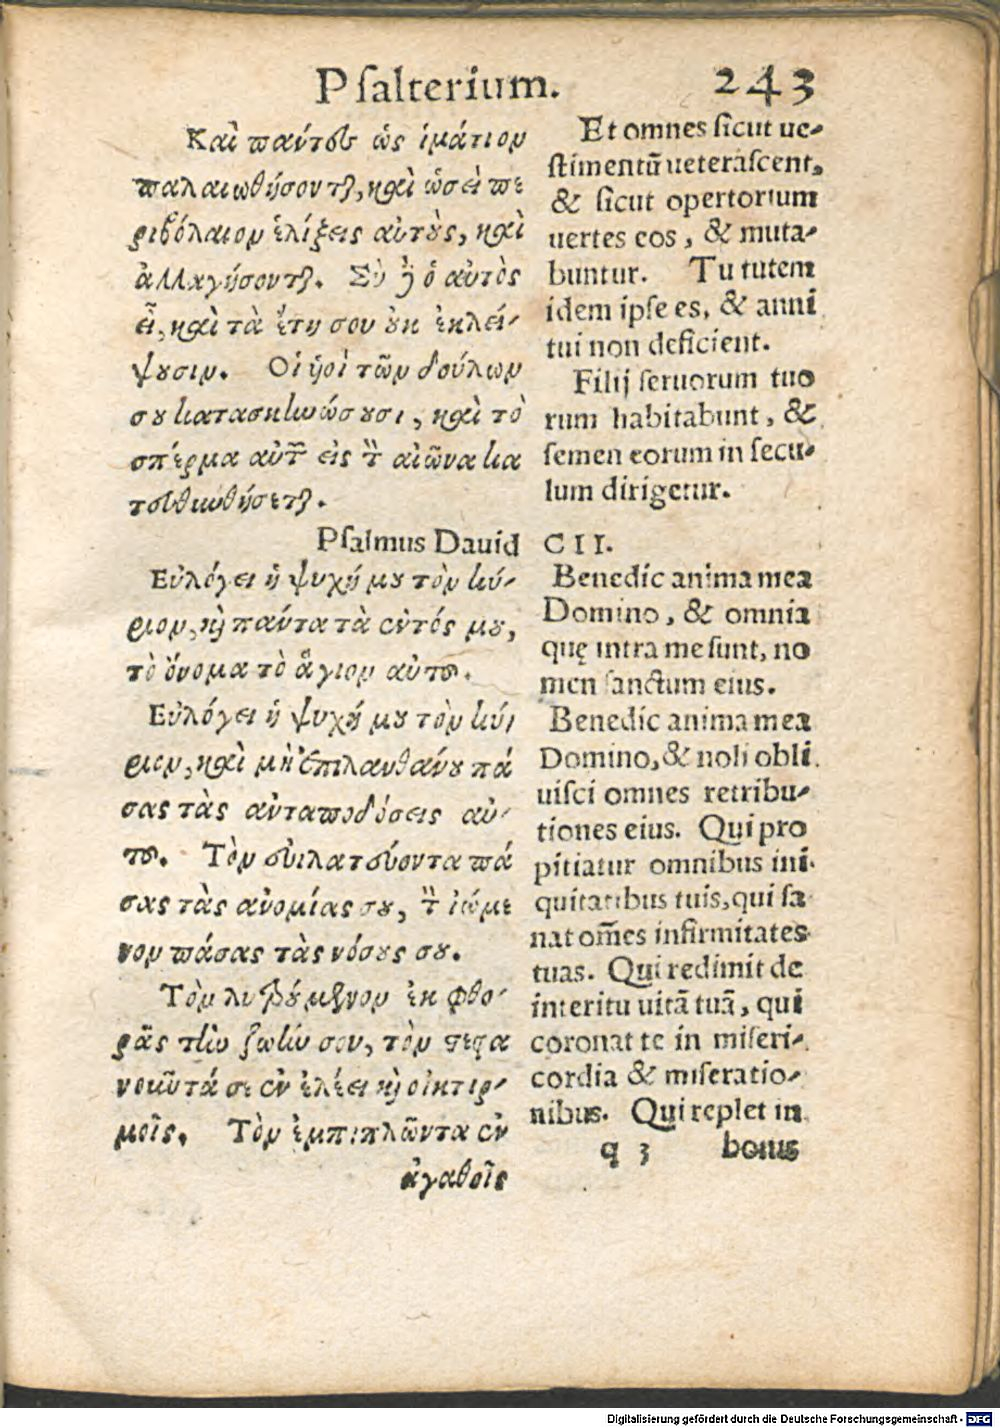 Psalterium. 243
Καὶ πάντες ὡς ἱμάτιον
παλαιωθήσονται, καὶ ὡσεὶ πε
ριβόλαιον ἑλίξεις αὐτοὺς, καὶ
ἀλλαγήσονται. Σὺ δὲ ὁ αὐτὸς
εἶ, καὶ τὰ ἔτη σου οὐκ ἐκλεί-
ψουσιν. Οἱ ὑοὶ τῶν δούλων
σου κατασκηνώσουσι, καὶ τὸ
σπέρμα αὐτῶν εἰς τὸν αἰῶνα κα
τευθυνθήσεται.
Psalmus David
Εὐλόγει ἡ ψυχή μου τὸν κύ-
ριον, καὶ πάντα τὰ ἐντός μου,
τὸ ὄνομα τὸ ἅγιον αὐτοῦ.
Εὐλόγει ἡ ψυχή μου τὸν κύ-
ριον, καὶ μὴ ἐπιλανθάνου πά
σας τὰς ἀνταποδόσεις αὐ-
τοῦ. Τὸν εὐιλατεύοντα πά
σας τὰς ἀνομίας σου, τὸν ἰώμε
νον πάσας τὰς νόσους σου.
Τὸν λυτρούμενον ἐκ φθο-
ρᾶς τὴν ζωήν σου, τὸν στεφα
νοῦντά σε ἐν ἐλέει καὶ οἰκτιρ-
μοῖς. Τὸν ἐμπιπλῶντα ἐν
ἀγαθοῖς
Et omnes sicut ue-
stimentũ ueterascent,
& sicut opertorium
uertes eos, & muta-
buntur. Tu tutem
idem ipse es, & anni
tui non deficient.
Filij seruorum tuo
rum habitabunt, &
semen eorum in secu-
lum dirigetur.
CII.
Benedic anima mea
Domino, & omnia
quę intra me sunt, no
men sanctum eius.
Benedic anima mea
Domino, & noli obli
uisci omnes retribu-
tiones eius. Qui pro
pitiatur omnibus ini-
quitatibus tuis, qui sa
nat om̃es infirmitates
tuas. Qui redimit de
interitu uitã tuã, qui
coronat te in miseri-
cordia & miseratio-
nibus. Qui replet in
q 3 bonis
Digitalisierung gefördert durch die Deutsche Forschungsgemeinschaft - DFG